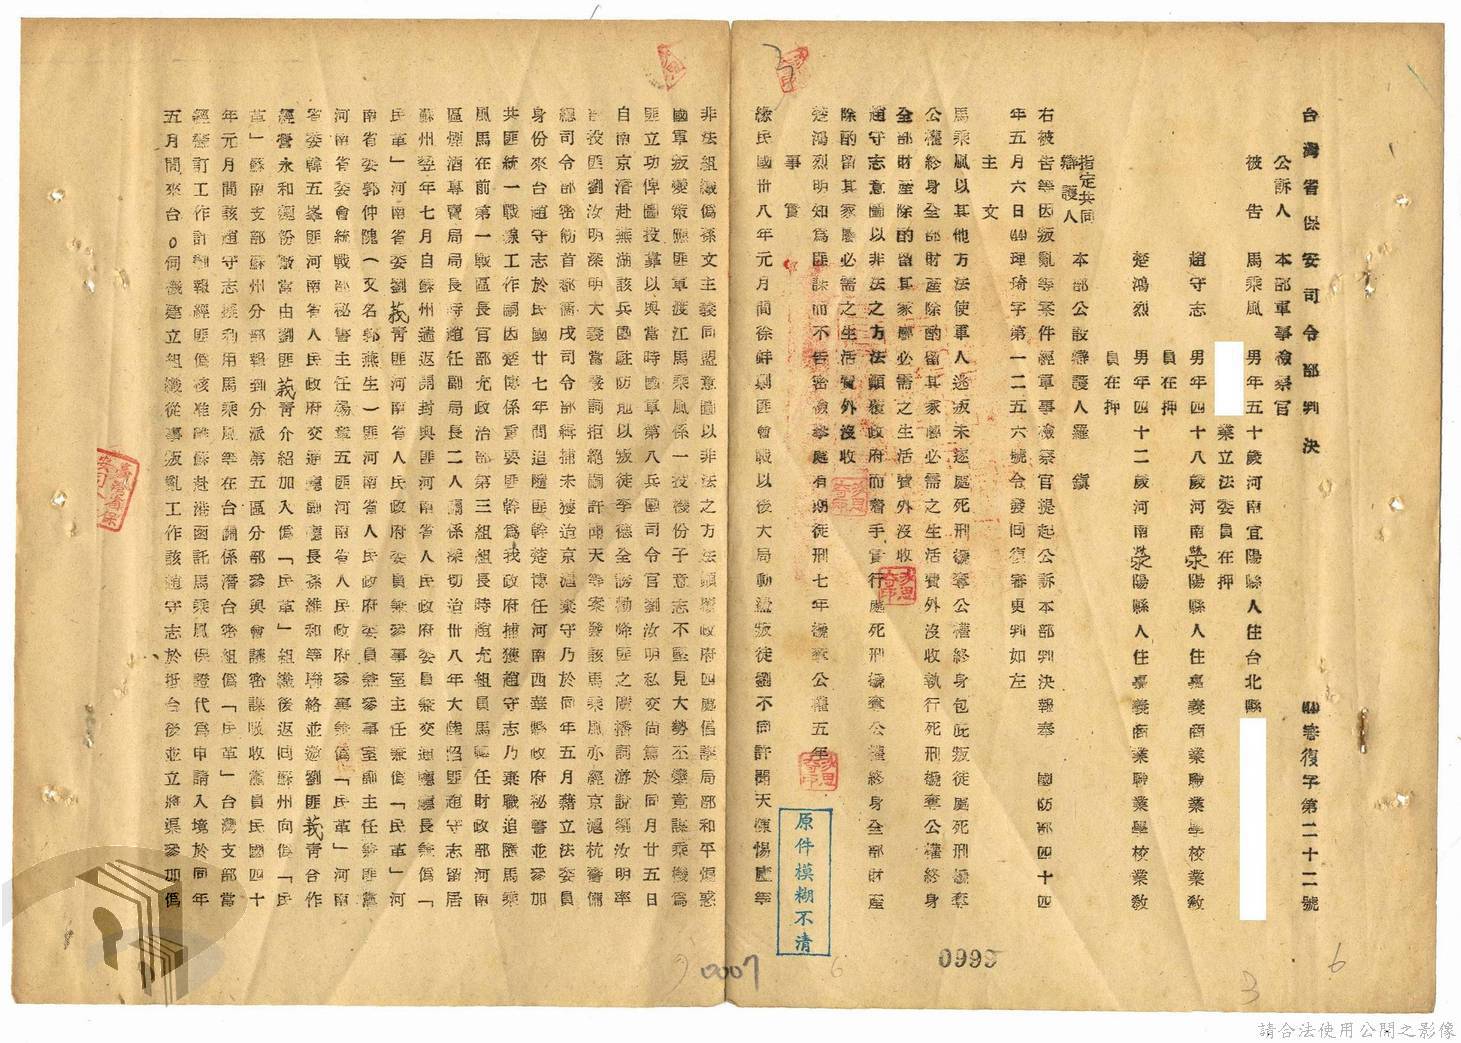 台灣省保安司令部判決
㈣審復字第二十二號
公訴人 本部軍事檢察官
被告 馬乘風 男年五十歲河南宜陽縣人住台北縣
業立法委員在押
趙守志 男年四十八歲河南滎陽縣人住嘉義商業職業學校業教
員在押
楚鴻烈 男年四十二歲河南滎陽縣人住嘉義商業職業學校業教
員在押
指定共同
辯護人 本部公設辯護人羅 鎮
右被告等因叛亂等案件經軍事檢察官提起公訴本部判決報奉 國防部四十四
年五月六日㈣理琦字第一二五六號令發回復審更判如左
主文
馬乘風以其他方法使軍人逃叛未遂處死刑褫奪公權終身包庇叛徒處死刑褫奪
公權終身全部財產除酌留其家屬必需之生活費外沒收執行死刑褫奪公權終身
全部財產除酌留其家屬必需之生活費外沒收
趙守志意圖以非法之方法顛覆政府而着手實行處死刑褫奪公權終身全部財產
除酌留其家屬必需之生活費外沒收
楚鴻烈明知為匪諜而不告密檢舉處有期徒刑七年褫奪公權五年
事實
緣民國卅八年元月間徐蚌剿匪會戰以後大局動盪叛徒劉不同許聞天陳惕廬等
非法組織偽孫文主義同盟意圖以非法之方法顛覆政府四處倡謀局部和平煽惑
國軍叛變策應匪軍渡江馬乘風係一投機份子意志不堅見大勢丕變竟謀乘機為
匪立功俾圖投靠以與當時國軍第八兵團司令官劉汝明私交尚篤於同月廿五日
自南京潛赴蕪湖該兵團駐防地以叛徒李德全誘勸降匪之廣播詞游說劉汝明率
部投匪劉汝明深明大義當發詞拒絕嗣許聞天等案發該馬乘風亦經京滬杭警備
總司令部密飭首都衛戍司令部緝捕未獲迨京滬棄守乃於同年五月藉立法委員
身份來台趙守志於民國廿七年間追隨匪幹楚傳任河南西華縣政府秘書並參加
共匪統一戰線工作嗣因楚傳係重要匪幹為我政府捕獲趙守志乃棄職追隨馬乘
風馬在前第一戰區長官部充政治部第三組組長時趙充組員馬專任財政部河南
區煙酒專賣局局長時趙任副局長二人關係深切迨卅八年大陸淪匪趙守志留居
蘇州翌年七月自蘇州遄返開封與匪河南省人民政府委員兼交通廳廳長兼偽「
民革」河南省委劉莪青匪河南省人民政府委員兼參事室主任兼偽「民革」河
南省委郭仲隗(又名郭燕生)匪河南省人民政府委員兼參事室副主任兼匪黨
河南省委會統戰部秘書主任楊章五匪河南省人民政府參事兼偽「民革」河南
省委韓五峯匪河南省人民政府交通廳副廳長孫維和等聯絡並邀劉匪莪青合作
經營永和麵粉廠當由劉匪莪青介紹加入偽「民革」組織後返回蘇州向偽「民
革」蘇南支部蘇州分部報到分派第五區分部參與會議密謀吸收黨員民國四十
年元月間該趙守志擬利用馬乘風等在台關係潛台密組偽「民革」台灣支部當
經簽訂工作計劃報經匪偽核准離蘇赴港函託馬乘風保證代為申請入境於同年
五月間來台。伺機建立組織從事叛亂工作該趙守志於抵台後並立將渠參加偽
原件模糊不清
0999
0007
6
3
請合法使用公開之影像